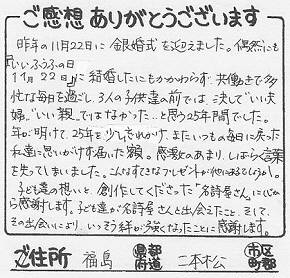 ご感想 ありがとうございます
昨年の11月22日に 銀婚式を迎えました。偶然にも
『いいふうふの日
11月22日』に結婚したにもかかわらず、共働きで多
忙な毎日を過ごし、3人の子供達の前では、決して"いい夫
婦、"いい親、ではなかった…と思う25年間でした。
年が明けて、25年を少しすぎかけ、またいつもの毎日に戻った
私達に思いがけず届いた額。感激のあまり、しばらく言葉
を失ってしまいました。こんなすてきなプレゼントが他にあるでしょうか。
子ども達の想いと、創作してくださった"名詩屋さん"に心か
ら感謝します。子ども達が名詩屋さんと出会えたこと、そして、
その出会いにより、いっそう絆が深くなったことに感謝します。
ご住所 福島 都道府県 二本松 市区町郡